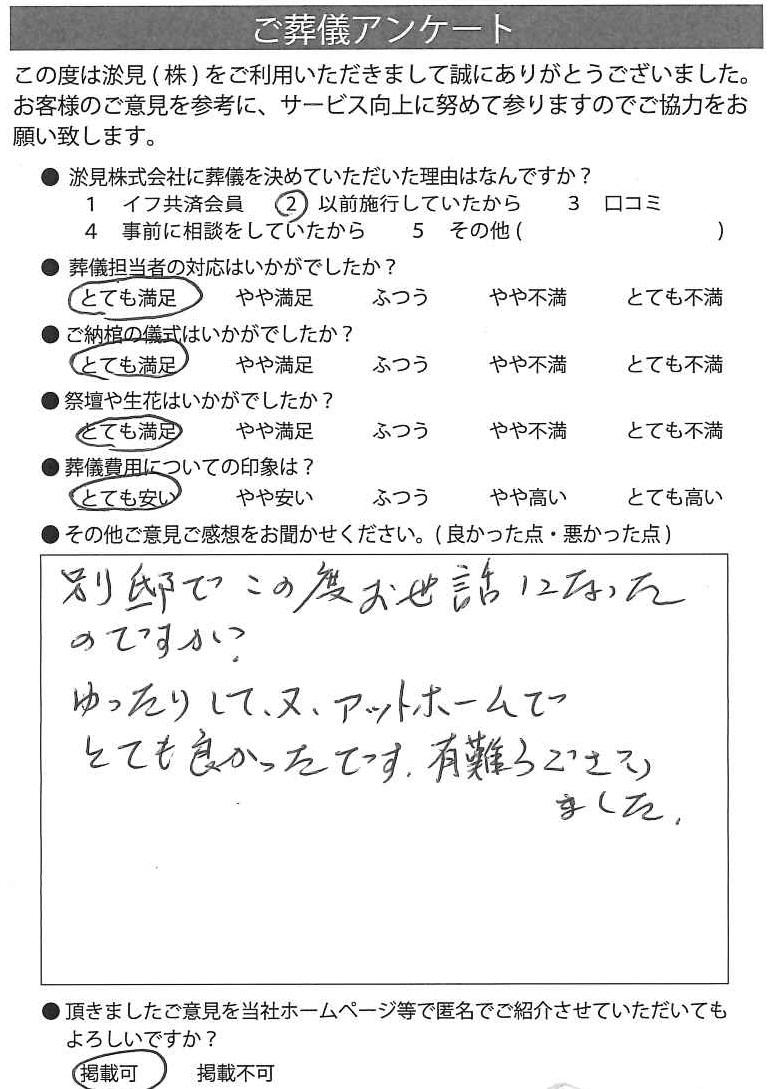 ご葬儀アンケート
この度は淤見(株)をご利用いただきまして誠にありがとうございました。
お客様のご意見を参考に、サービス向上に努めて参りますのでご協力をお
願い致します。
● 淤見株式会社に葬儀を決めていただいた理由はなんですか？
1 イフ共済会員 2 以前施行していたから 3 口コミ
4 事前に相談をしていたから 5 その他( )
● 葬儀担当者の対応はいかがでしたか？
とても満足 やや満足 ふつう やや不満 とても不満
● ご納棺の儀式はいかがでしたか？
とても満足 やや満足 ふつう やや不満 とても不満
● 祭壇や生花はいかがでしたか？
とても満足 やや満足 ふつう やや不満 とても不満
● 葬儀費用についての印象は？
とても安い やや安い ふつう やや高い とても高い
● その他ご意見ご感想をお聞かせください。(良かった点・悪かった点)
別邸で この度お世話になった
のですが、
ゆったりして、又、アットホームで
とても良かったです。有難うござい
ました。
● 頂きましたご意見を当社ホームページ等で匿名でご紹介させていただいても
よろしいですか？
掲載可 掲載不可